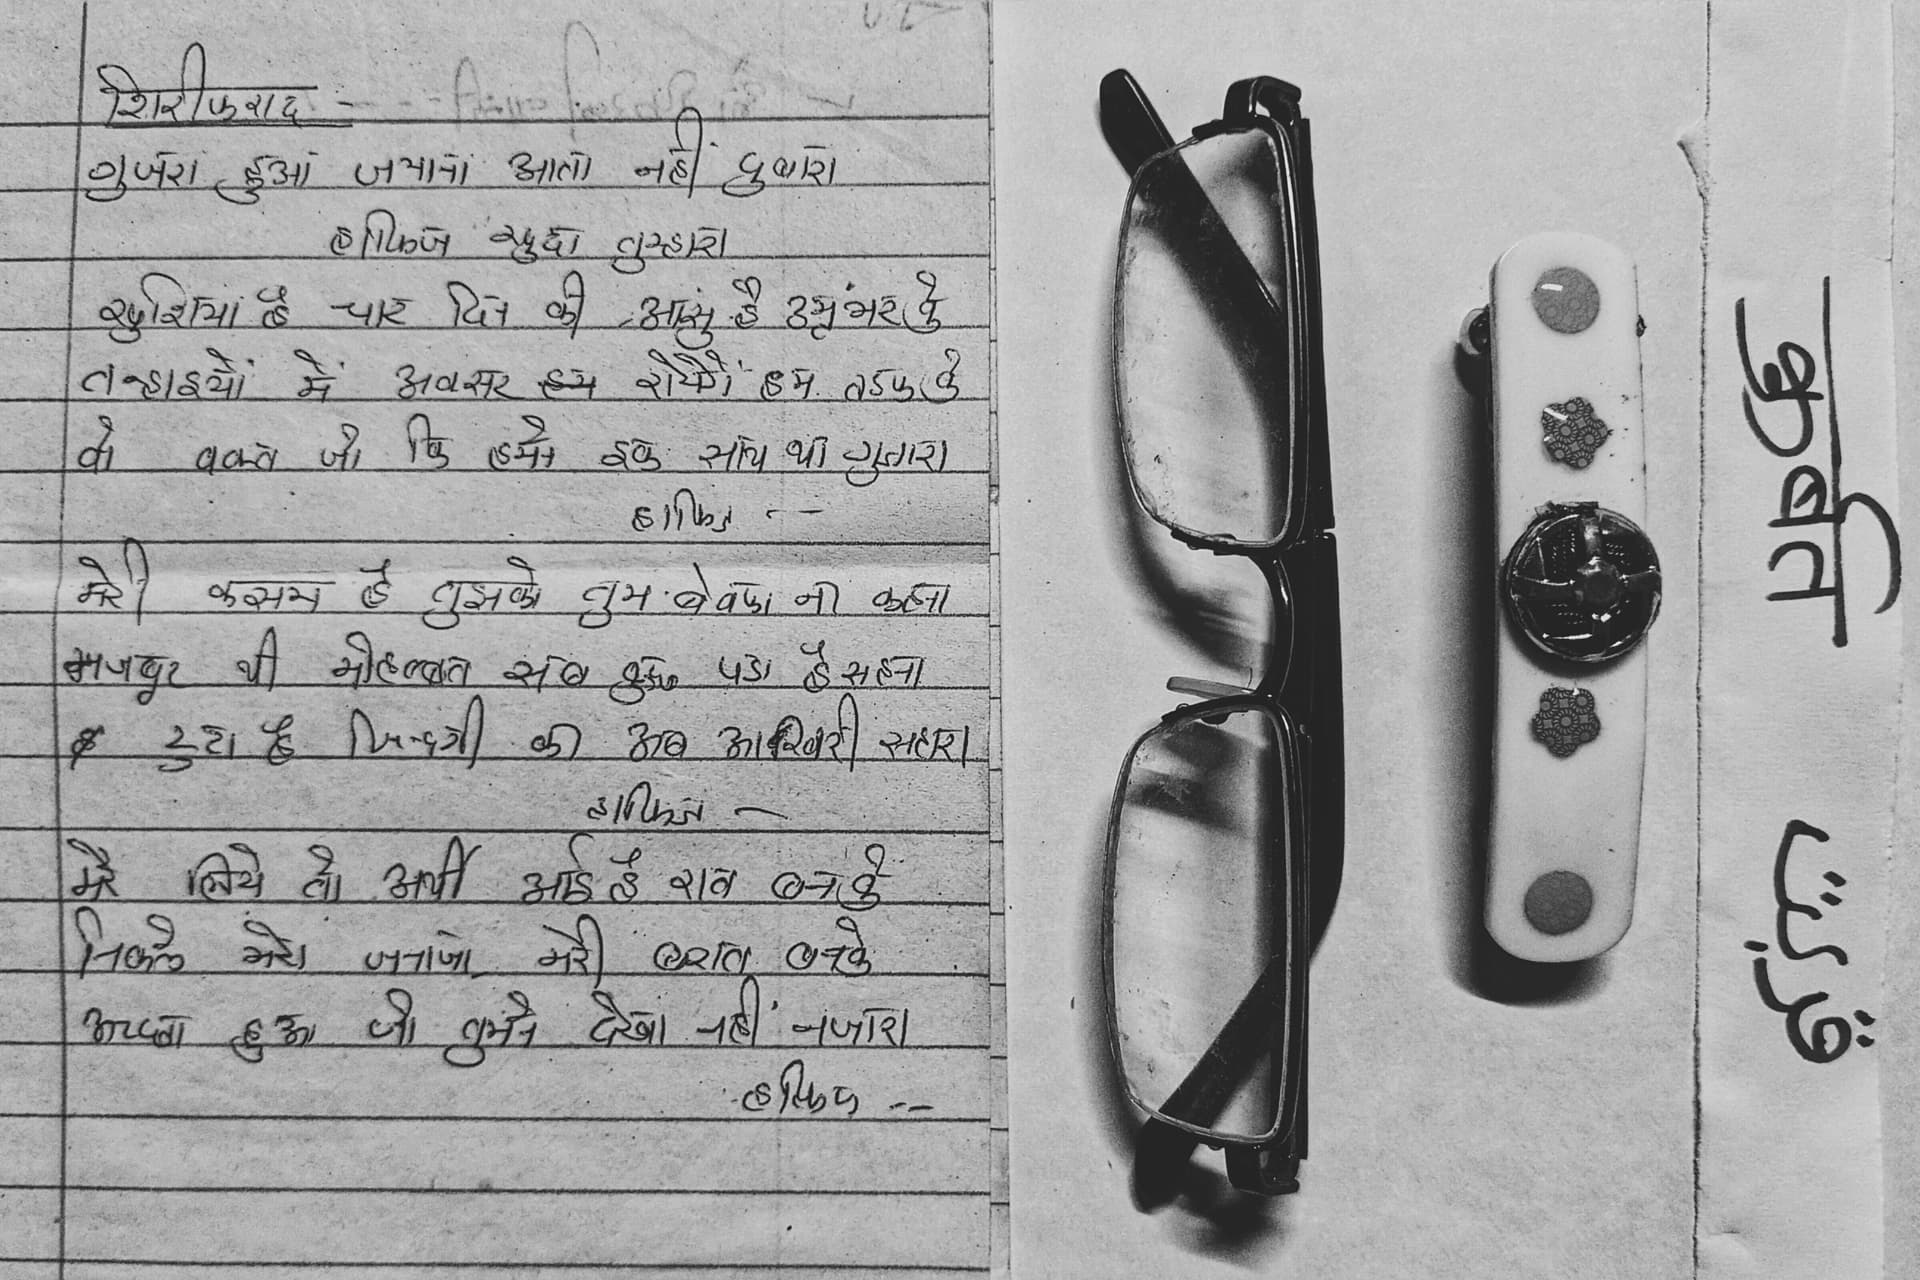 शिरीफराद -
गुजरा हुआ जमाना आता नहीं दुबारा
हाफिज खुदा तुम्हारा
खुशियां है चार दिन की आंसु है उम्रंभर के
तन्हाइयों में अक्सर रोयेगें हम तडफ के
वो वक्त जो कि हमने इक साथ था गुजारा
हाफिज --
मेरी कसम है तुझको तुम बेवफा ना कहना
मजबूर थी मोहब्बत सब कुछ पडा है सहना
टुटा है जिन्दगी का अब आखिरी सहारा
हाफिज -
मेरे लिये तो अर्थी आई है रात बनके
निकले मेरा जनाजा मेरी बारात बनके
अच्छा हुआ जो तुमने देखा नहीं नजारा
हाफिज --
क़ुर्बत قربت